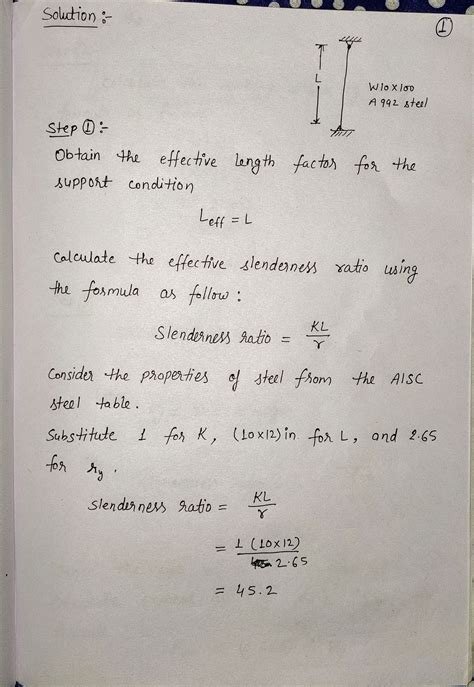 Solution :-
①
L
W10 x 100
A 992 steel
Step ① :-
Obtain the effective length factor for the
support condition
Leff = L
Calculate the effective slenderness ratio using
the formula as follow :
Slenderness ratio = KL/r
Consider the properties of steel from the AISC
steel table.
Substitute 1 for K, (10x12) in for L, and 2.65
for ry.
Slenderness ratio = KL/r
= 1 (10x12)/2.65
= 45.2